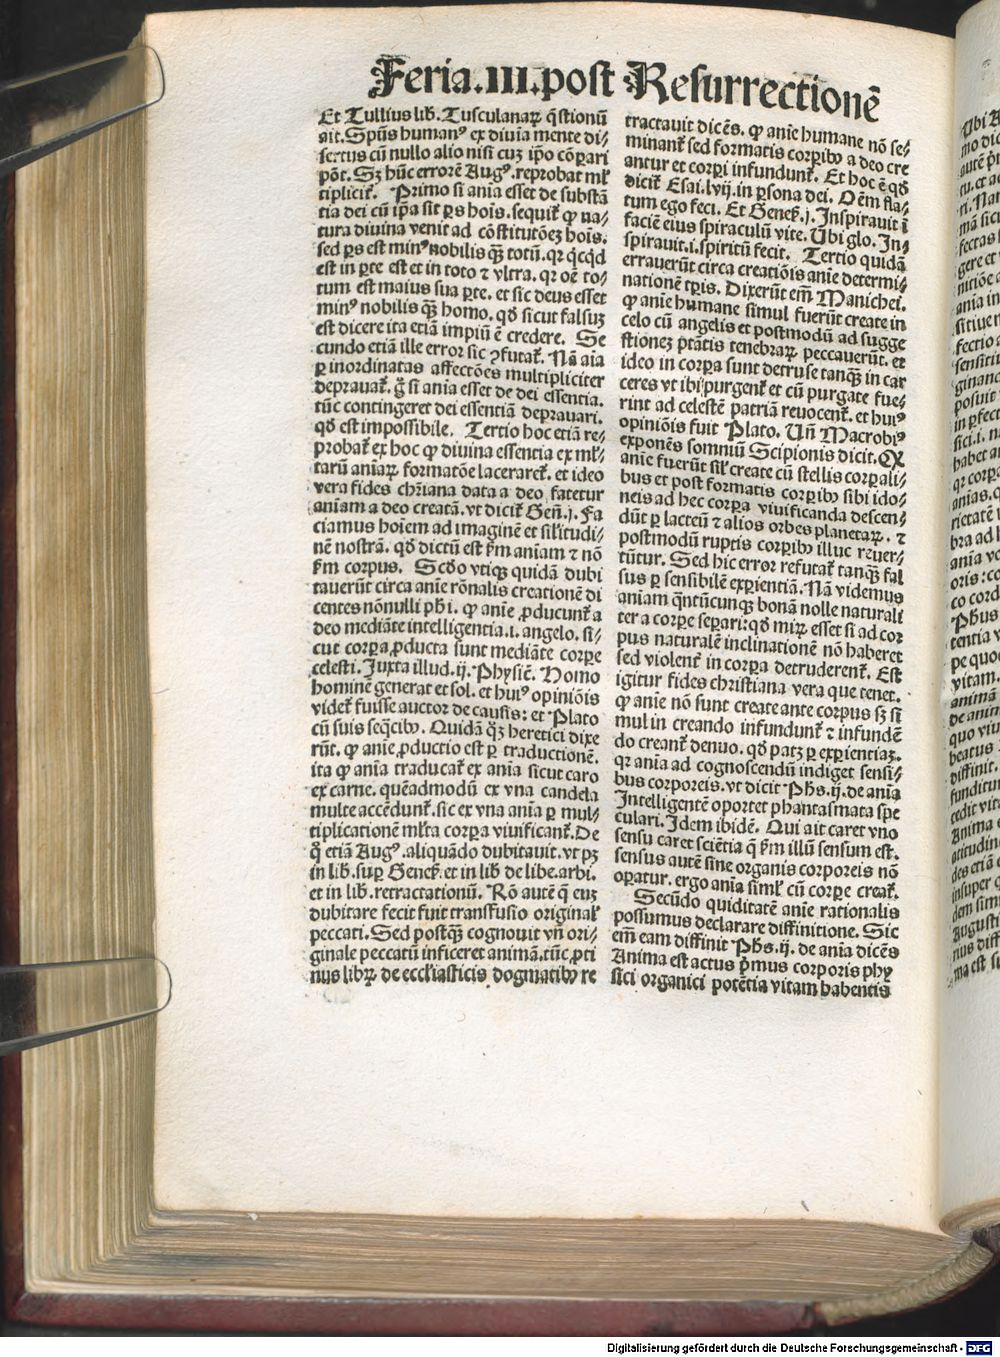 Feria.III.post Resurrectionē
Et Tullius lib. Tusculanaꝝ q̄stionū
ait. Spūs humanꝰ ex diuīa mente di⸗
sertus cū nullo alio nisi cuꝫ ip̄o cōꝑari
pōt. Sꝫ hūc errorē Augꝰ. reprobat ml̄
tiplicit̄. Primo si aīa esset de substā
tia dei cū ip̄a sit ꝑs hoīs. sequit̄ ꝙ na⸗
tura diuina venit ad cōstitutōeꝫ hoīs.
sed ꝑs est minꝰ nobilis qꝫ̄ totū. qꝛ qcqd
est in ꝑte est et in toto ⁊ vltra. qꝛ oē to⸗
tum est maius sua ꝑte. et sic deus esset
minꝰ nobilis qꝫ̄ homo. qd̄ sicut falsuꝫ
est dicere ita etiā impiū ē credere. Se
cundo etiā ille error sic ꝯfutat̄. Nā aīa
ꝑ inordinatas affectōes multipliciter
deprauat̄. g̊ si anīa esset de dei essentia.
tūc contingeret dei essentiā deprauari.
qd̄ est impossibile. Tertio hoc etiā re⸗
probat̄ ex hoc ꝙ diuina essentia ex ml̄⸗
tarū anīaꝝ formatōe laceraret̄. et ideo
vera fides chr̄iana data a deo fatetur
anīam a deo creatā. vt dicit̄ Geñ.j. Fa
ciamus hoīem ad imaginē et sil̄itudi⸗
nē nostrā. qd̄ dictū est ẜm aniam ⁊ nō
ẜm corpus. Scd̄o vtiqꝫ quidā dubi
tauerūt circa anīe rōnalis creationē di
centes nōnulli ph̄i. ꝙ anīe ꝓducunt̄ a
deo mediāte intelligentia .i. angelo. si⸗
cut corꝑa ꝓducta sunt mediāte corꝑe
celesti. Juxta illud .ij. Phisic̄. Homo
hominē generat et sol. et huiꝰ opiniōis
videt̄ fuisse auctor de causis: et Plato
cū suis seq̄cibꝰ. Quidā qꝫ̄ heretici dixe
rūt. ꝙ anīe ꝓductio est ꝑ traductionē.
ita ꝙ anīa traducat̄ ex anīa sicut caro
ex carne. quēadmodū ex vna candela
multe accēdunt̄. sic ex vna anīa ꝑ mul⸗
tiplicationē ml̄ta corꝑa viuificant̄. De
q̊ etiā Augꝰ. aliquādo dubitauit. vt pꝫ
in lib. suꝑ Genef̄. et in lib̄ de libe. arbi.
et in lib. retractationū. Rō autē q̄ euꝫ
dubitare fecit fuit transfusio original̄
peccati. Sed postqꝫ̄ cognouit vñ ori⸗
ginale peccatū inficeret animā. tūc ꝓti
nus libꝝ de eccl̄iasticis dogmatibꝰ re
tractauit dicēs. ꝙ anīe humane nō se⸗
minant̄ sed formatis corꝑibꝰ a deo cre
antur et corꝑi infundunt̄. Et hoc ē qd̄
dicit̄ Esai. lvij. in ꝑsona dei. Oēm fla⸗
tum ego feci. Et Genef̄.j. Inspirauit ī
faciē eius spiraculū vite. Ubi glo. In⸗
spirauit .i. spiritū fecit. Tertio quidā
errauerūt circa creatiōis anīe determi⸗
nationē tꝑis. Dixerūt em̄ Manichei.
ꝙ anīe humane simul fuerūt create in
celo cū angelis et postmodū ad sugge
stioneꝫ ptātis tenebraꝝ peccauerūt. et
ideo in corꝑa sunt detruse tanqꝫ̄ in car
ceres vt ibi purgent̄ et cū purgate fue⸗
rint ad celestē patriā reuocent̄. et huiꝰ
opiniōis fuit Plato. Uñ Macrobiꝰ
exponēs somniū Scipionis dicit. Qꝙ
anīe fuerūt sil̄ create cū stellis corꝑali⸗
bus et post formatis corꝑibꝰ sibi ido⸗
neis ad hec corꝑa viuificanda descen⸗
dūt ꝑ lacteū ⁊ alios orbes planetaꝝ. ⁊
postmodū ruptis corꝑibꝰ illuc reuer⸗
tūtur. Sed hic error refutat̄ tanqꝫ̄ fal
sus ꝑ sensibilē exꝑientiā. Nā videmus
aniam q̄ntūcunqꝫ bonā nolle naturali
ter a corꝑe seꝑari: qd̄ miꝝ esset si ad cor
pus naturalē inclinationē nō haberet
sed violent̄ in corꝑa detruderent̄. Est
igitur fides christiana vera que tenet.
ꝙ anīe nō sunt create ante corpus sꝫ si
mul in creando infundunt̄ ⁊ infundē
do creant̄ denuo. qd̄ patꝫ ꝑ exꝑientiaꝫ.
qꝛ anīa ad cognoscendū indiget sensi⸗
bus corporeis. vt dicit Ph̄s. ij. de anīa
Intelligentē oportet phantasmata spe
culari. Idem ibidē. Qui ait caret vno
sensu caret sciētia q̄ ẜm illū sensum est.
sensus autē sine organis corporeis nō
oꝑatur. ergo anīa siml̄ cū corꝑe creat̄.
Secūdo quiditatē anīe rationalis
possumus declarare diffinitione. Sic
em̄ eam diffinit Ph̄s. ij. de anīa dicēs
Anima est actus p̄mus corporis phy
sici organici potētia vitam habentis
Digitalisierung gefördert durch die Deutsche Forschungsgemeinschaft - DFG